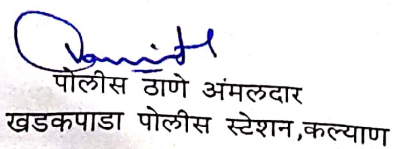 पोलीस ठाणे अंमलदार
खडकपाडा पोलीस स्टेशन,कल्याण